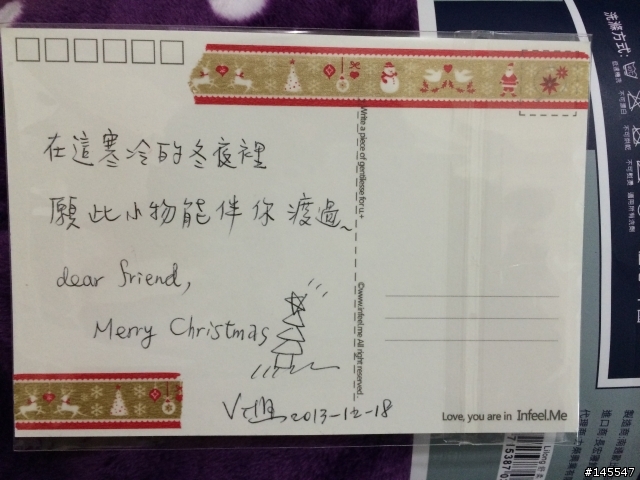 在這寒冷的冬夜裡
願此小物能伴你渡過~
dear friend,
Merry Christmas
2013-12-18
Write a piece of gentlesse for u+
©www.infeel.me All right reserved.
Love, you are in Infeel.Me
洗滌方式:
不可漂白
不可烘乾
製造商
進口商
代理商
#145547